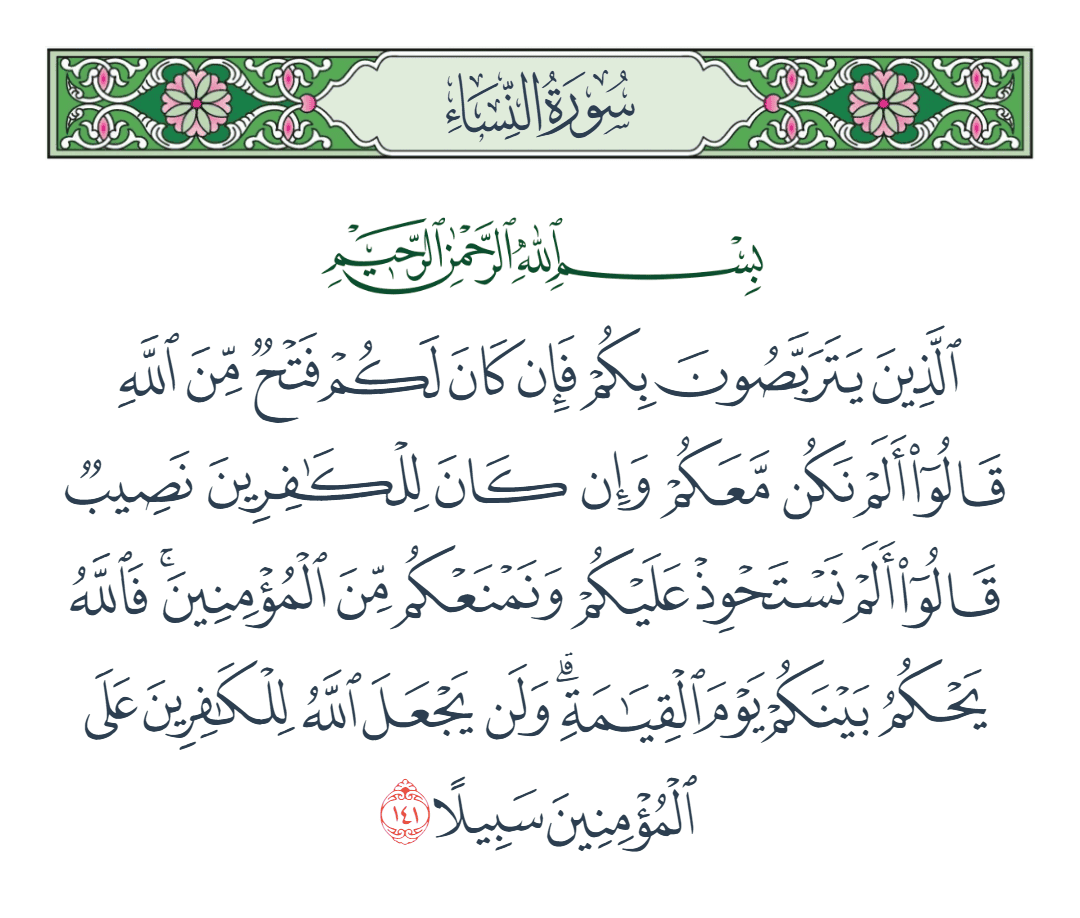 سُورَةُ النِّسَاءِ
بِسْمِ ٱللَّهِ ٱلرَّحْمَٰنِ ٱلرَّحِيمِ
ٱلَّذِينَ يَتَرَبَّصُونَ بِكُمْ فَإِن كَانَ لَكُمْ فَتْحٌ مِّنَ ٱللَّهِ
قَالُوٓا۟ أَلَمْ نَكُن مَّعَكُمْ وَإِن كَانَ لِلْكَـٰفِرِينَ نَصِيبٌ
قَالُوٓا۟ أَلَمْ نَسْتَحْوِذْ عَلَيْكُمْ وَنَمْنَعْكُم مِّنَ ٱلْمُؤْمِنِينَ ۚ فَٱللَّهُ
يَحْكُمُ بَيْنَكُمْ يَوْمَ ٱلْقِيَـٰمَةِ ۗ وَلَن يَجْعَلَ ٱللَّهُ لِلْكَـٰفِرِينَ عَلَى
ٱلْمُؤْمِنِينَ سَبِيلًا ١٤١